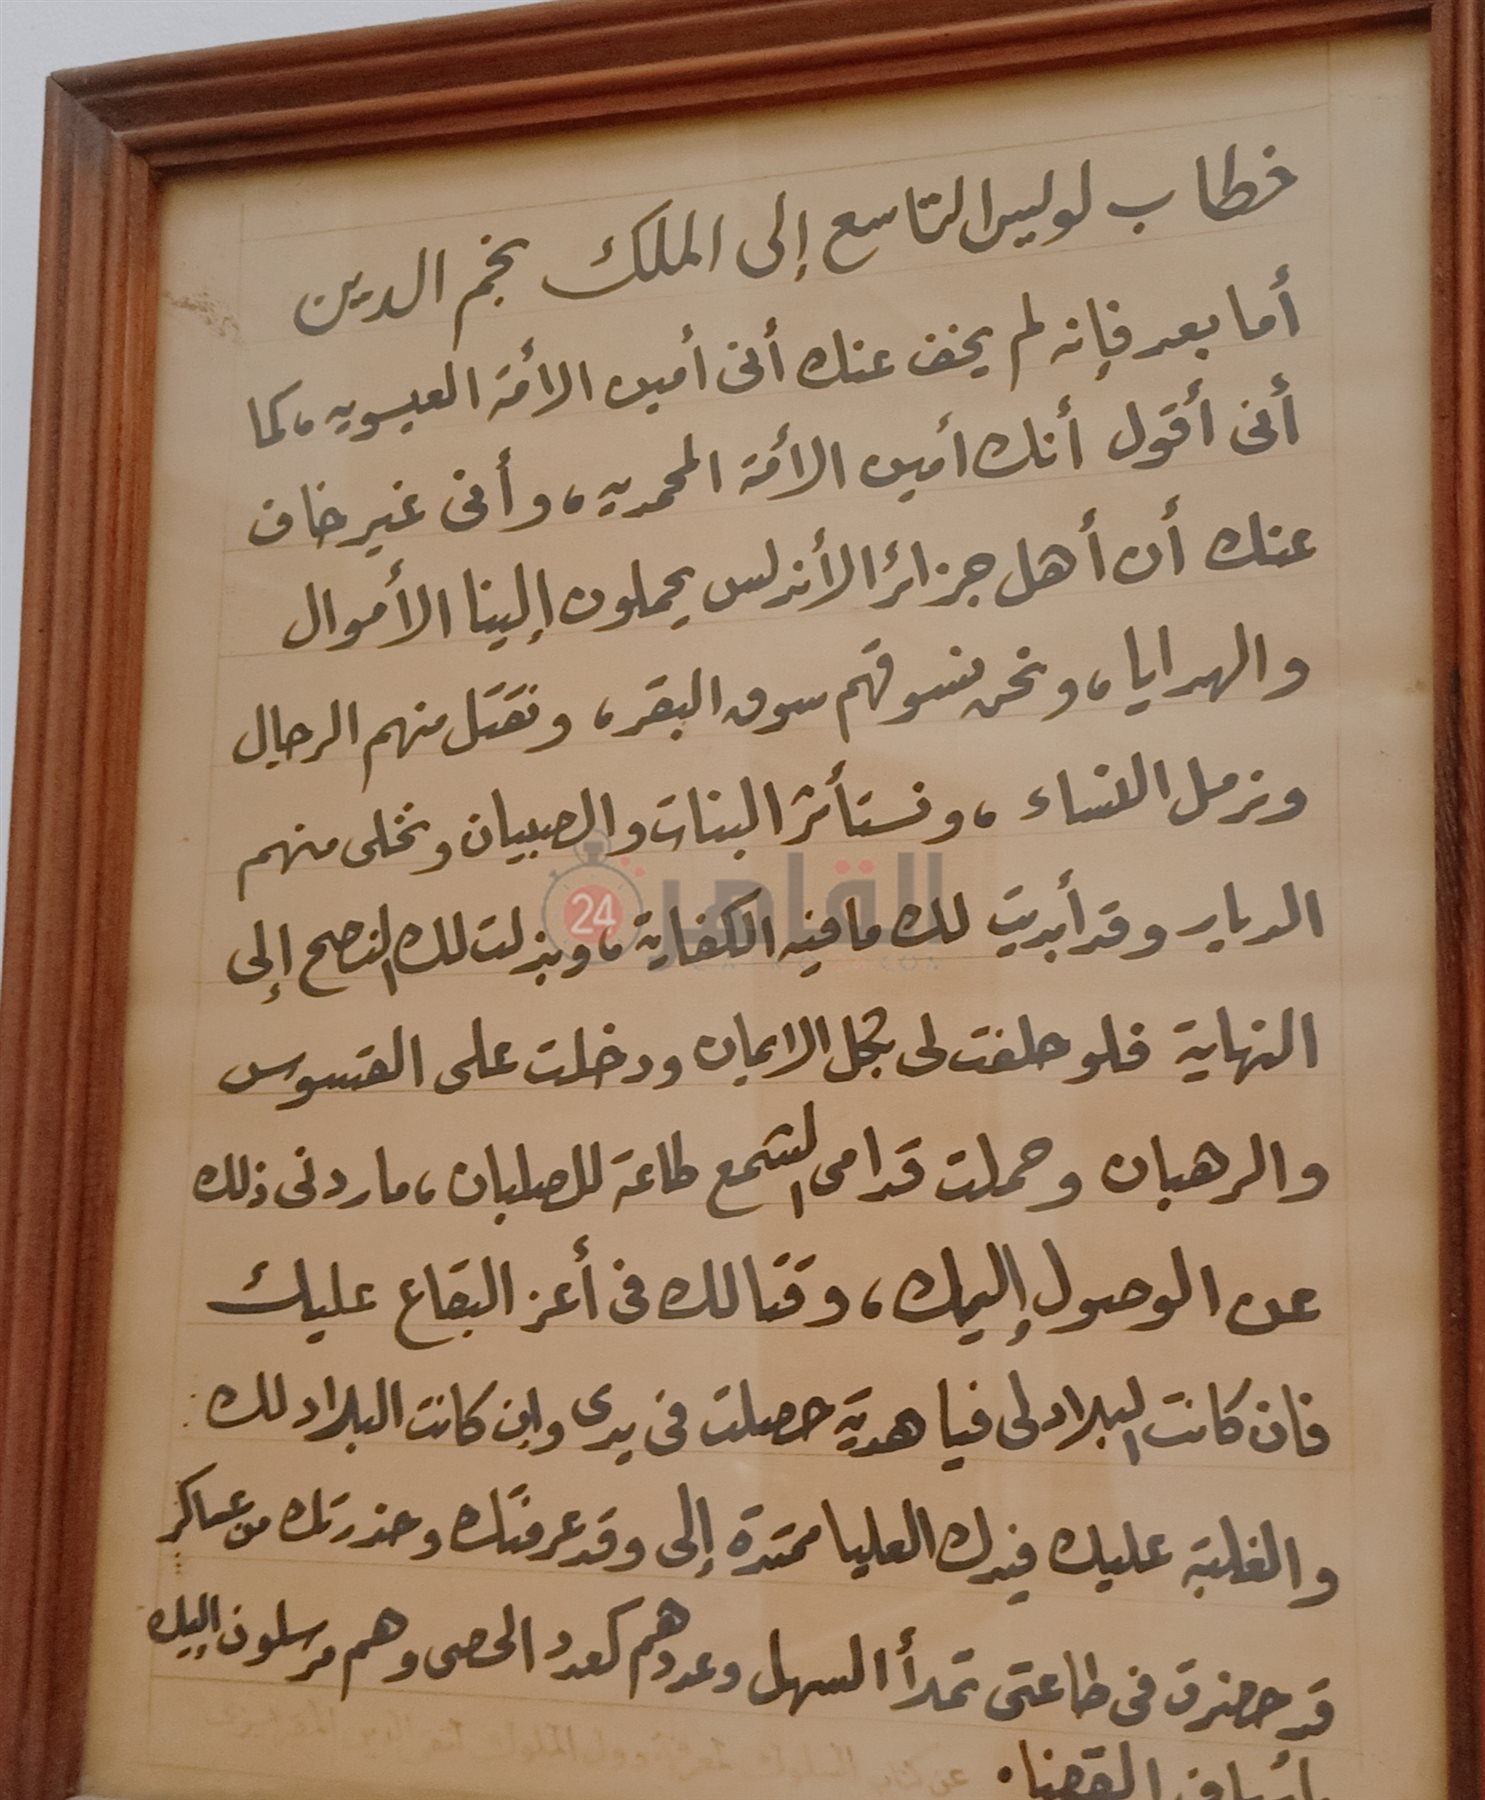 خطاب لويس التاسع إلى الملك نجم الدين
أما بعد فإنه لم يخف عنك أنى أمين الأمة العيسويه، كما
أنى أقول أنك أمين الأمة المحمديه، وأنى غير خاف
عنك أن أهل جزائر الأندلس يحملون إلينا الأموال
والهدايا، ونحن نسوقهم سوق البقر، ونقتل منهم الرجال
ونرمل النساء، ونستأثر البنات والصبيان ونخلى منهم
الديار وقد أبديت لك ما فيه الكفاية، وبذلت لك النصح إلى
النهاية فلو حلفت لى بكل الايمان ودخلت على القسوس
والرهبان وحملت قدامى الشمع طاعة للصلبان، ما ردنى ذلك
عن الوصول إليك، وقتالك فى أعز البقاع عليك
فان كانت البلاد لى فيا هدية حصلت فى يدى وإن كانت البلاد لك
والغلبة عليك فيدك العليا ممتدة إلى وقد عرفتك وحذرتك من عساكر
قد حضرت فى طاعتى تملأ السهل وعددهم كعدد الحصى وهم مرسلون إليك
بأسياف القضا.
عن كتاب السلوك لمعرفة دول الملوك لتقى الدين المقريزى
القاهرة
24